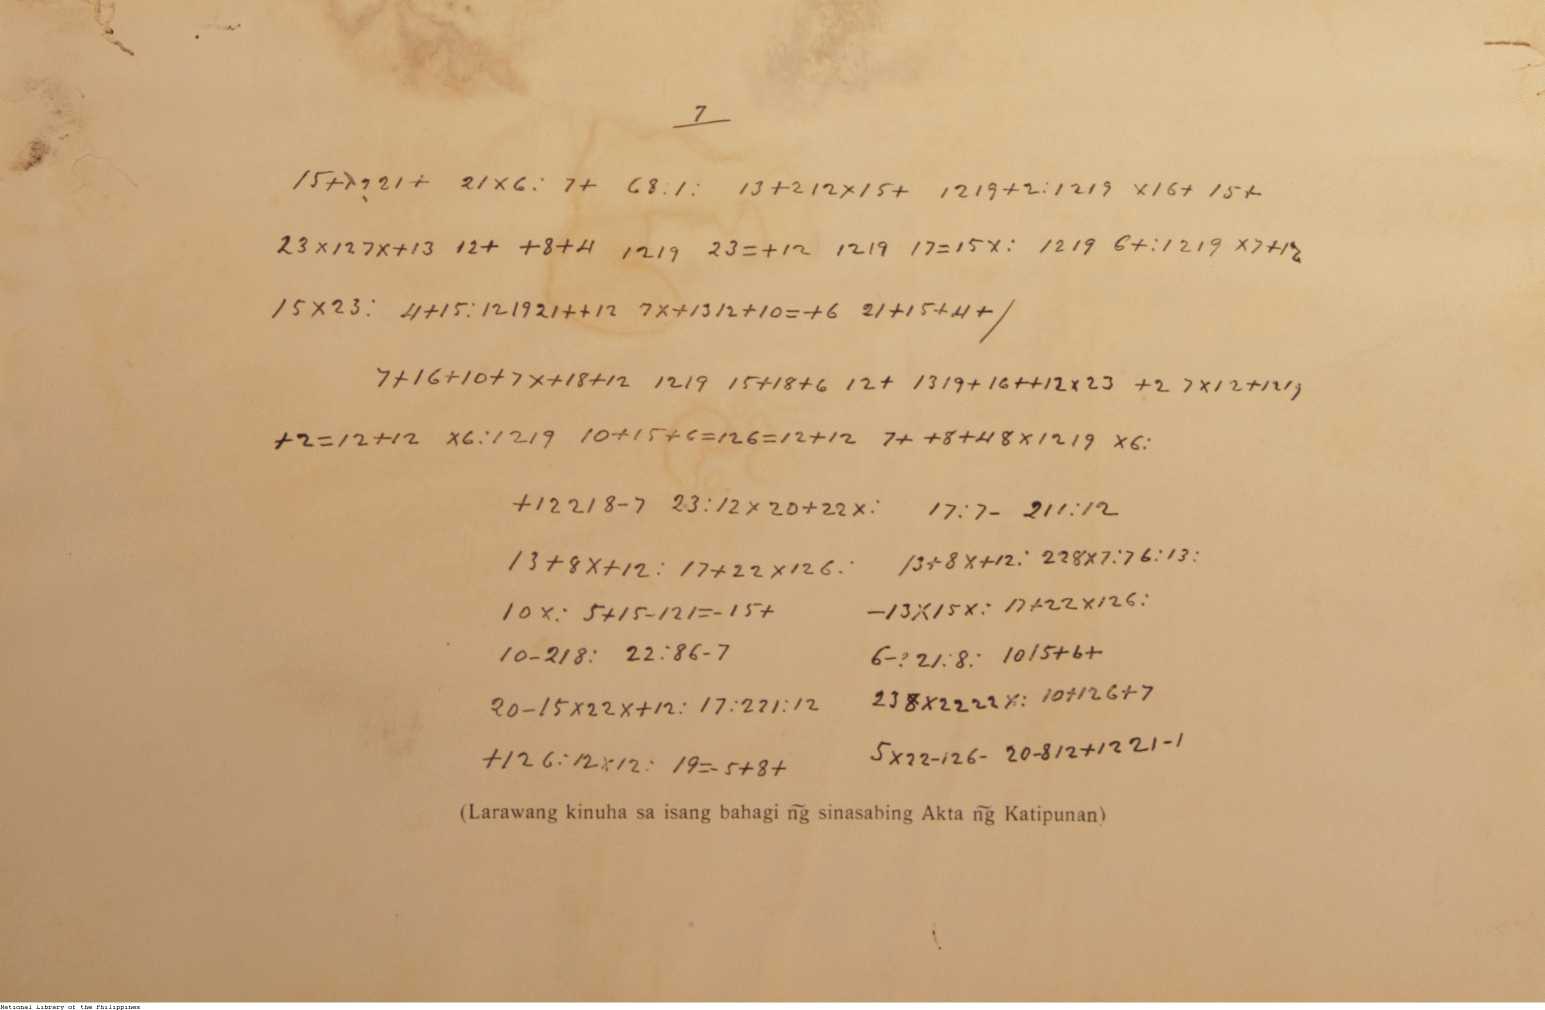 7
21×6: 7+ 68:1: 13+212×15+ 1219+2:1219 ×16+ 15+
23×127×+13 12+ +8+4 1219 23=+12 1219 17=15×: 1219 6+:1219 ×7+12
15×23: 4+15:121921++12 7×+1312+10=+6 21+15+4+/
7+16+10+7×+18+12 1219 15+18+6 12+ 1319+16++12×23 +2 7×12+1219
+2=12+12 ×6:1219 10+15+6=126=12+12 7+ +8+48×1219 ×6:
+12218-7 23:12×20+22×: 17:7- 211:12
13+8×+12: 17+22×126: 13+8×+12: 228×7:76:13:
10×: 5+15-121=-15+ -13×15×: 17+22×126:
10-218: 22:86-7 6-?21:8: 1015+6+
20-15×22×+12: 17:221:12 238×2222×: 10+126+7
+126:12×12: 19=-5+8+ 5×22-126- 20-812+1221-1
(Larawang kinuha sa isang bahagi n͠g sinasabing Akta n͠g Katipunan)
National Library of the Philippines